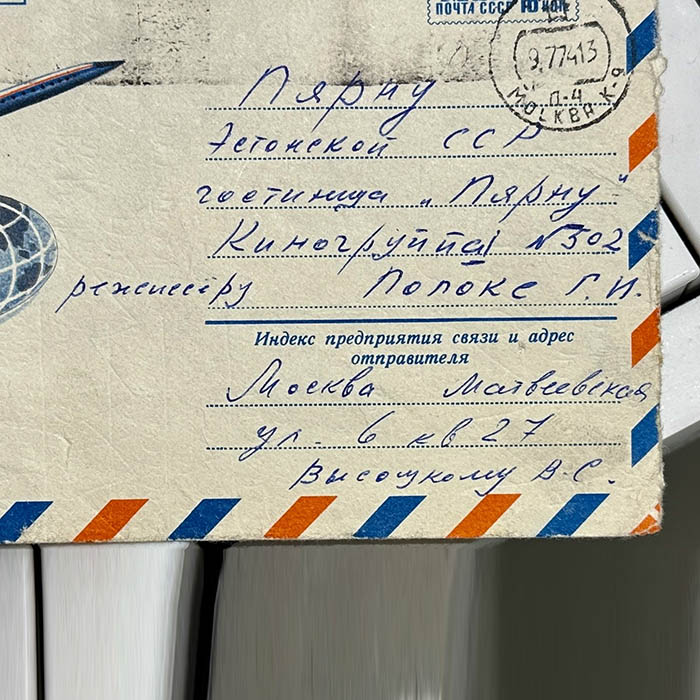 ПОЧТА СССР
9.77413
П-4
МОСКВА К-9
Пярну
Эстонской ССР
гостиница „Пярну"
Киногруппа №302
режиссёру Полоке Г.И.
Индекс предприятия связи и адрес
отправителя
Москва Матвеевская
ул. 6 кв 27
Высоцкому В.С.